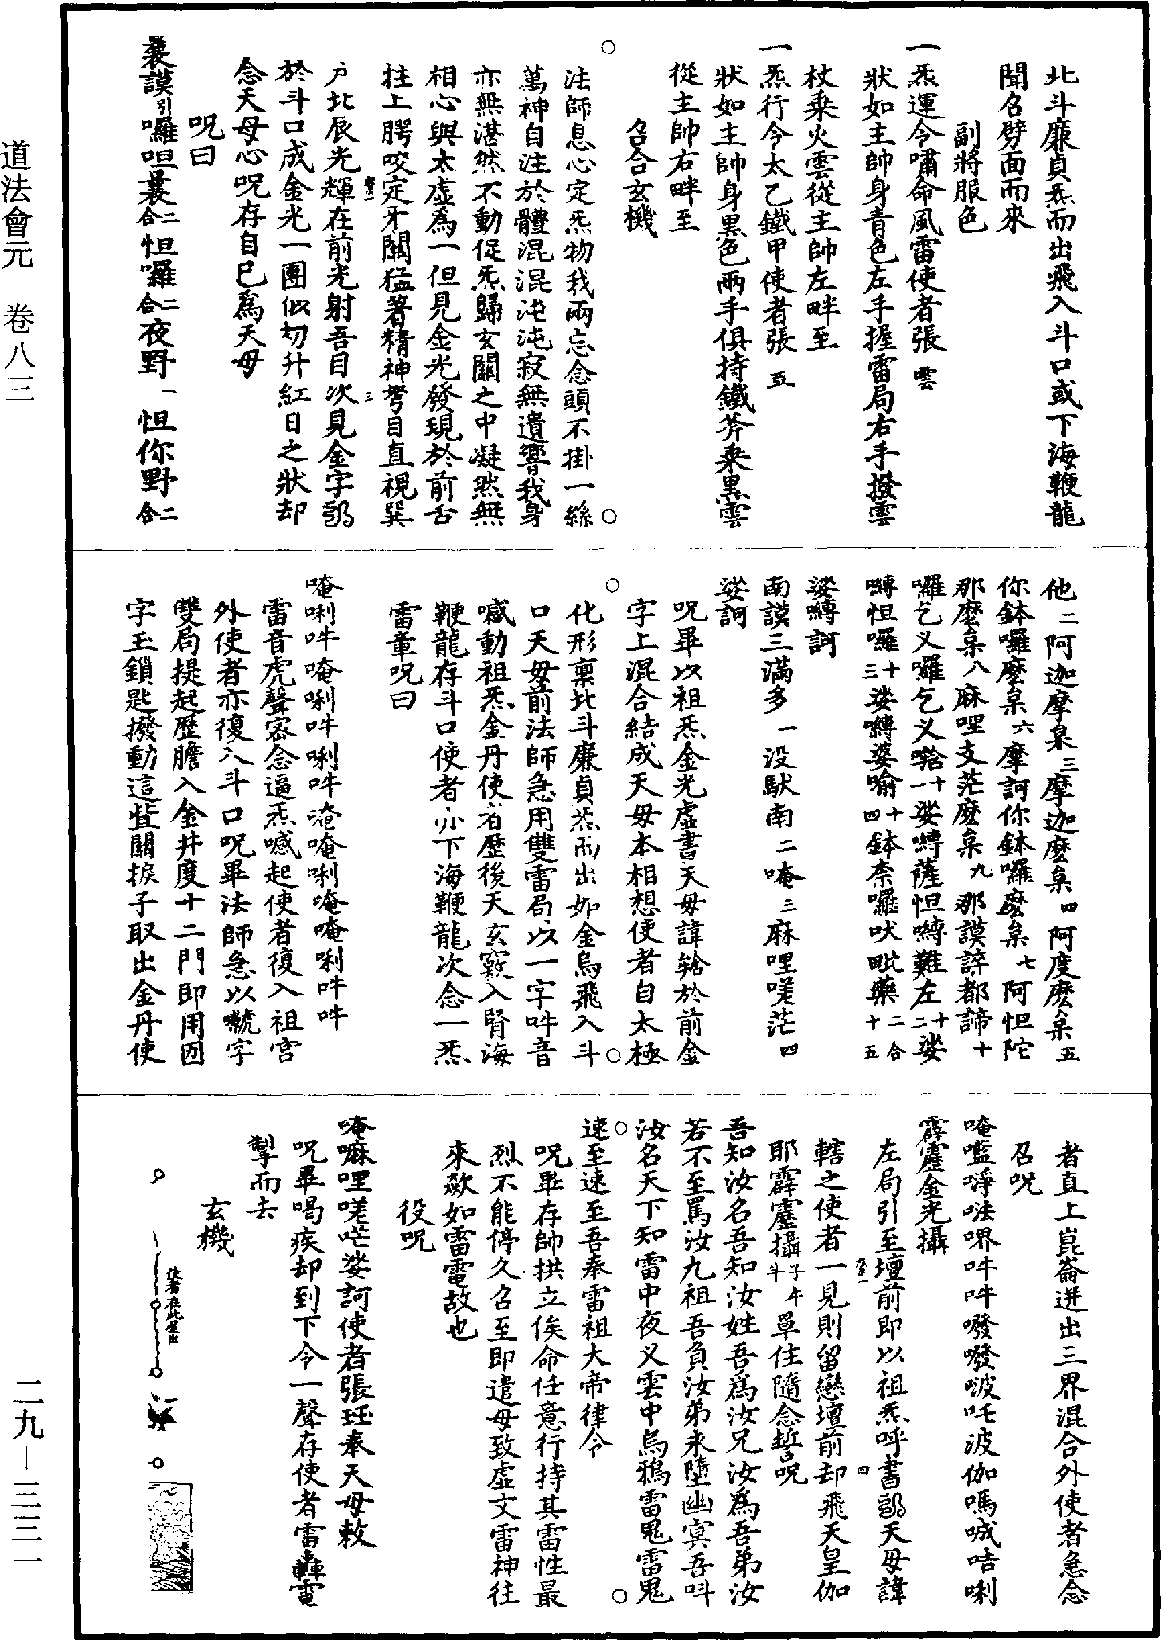 道法會元　卷八三
二九—三三一
北斗廉貞炁而出飛入斗口或下海鞭龍
聞名劈面而來
副將服色
一炁運令嘯命風雷使者張雲
狀如主帥身青色左手握雷局右手撥雲
杖乘火雲從主帥左畔至
一炁行令太乙鐵甲使者張五
狀如主帥身黑色兩手俱持鐵斧乘黑雲
從主帥右畔至
召合玄機
法師息心定炁物我兩忘念頭不掛一絲
萬神自注於體混混沌沌寂無遺響我身
亦無湛然不動促炁歸玄關之中凝然無
相心與太虛為一但見金光發現於前舌
拄上腭咬定牙關猛著精神弩目直視巽
戶北辰光輝在前光射吾目次見金字
於斗口成金光一團似初升紅日之狀却
念天母心呪存自己為天母
呪曰
曩謨引囉呾曩二合怛囉二合夜野一怛你野二合
他二阿迦摩臬三摩迦麼臬四阿度麼臬五
你鉢囉麼臬六摩訶你鉢囉麼臬七阿怛陀
那麼臬八麻哩支茫麼臬九那謨誶都諦十
囉乞义囉乞义𤚥十一娑嚩薩怛嚩難左十二娑
嚩怛囉十三娑嚩婆喻十四鉢柰囉吠毗藥二合十五
娑嚩訶
南謨三滿多一沒馱南二唵三麻哩嗟茫四
娑訶
呪畢以祖炁金光虛書天母諱於前金
字上混合結成天母本相想使者自太極
化形稟北斗廉貞炁而出如金烏飛入斗
口天母前法師急用雙雷局以一字吽音
喊動祖炁金丹使者歷後天玄竅入腎海
鞭龍存斗口使者亦下海鞭龍次念一炁
雷章呪曰
唵唎吽唵唎吽唎吽唵唵唎唵唵唎吽吽
雷音虎聲密念逼炁喊起使者復入祖宮
外使者亦復入斗口呪畢法師急以字
雙局提起歷膽入金井度十二門即用囚
字玉鎖匙撥動這些關捩子取出金丹使
者直上崑崙迸出三界混合外使者急念
召呪
唵嚂㘁㗒㗑吽吽㗶㗶啵吒波伽嗎㖑咭唎
霹靂金光攝
左局引至壇前即以祖炁呼書天母諱
轄之使者一見則留戀壇前却飛天皇伽
耶霹靂攝子午斗單住隨念誓呪
吾知汝名吾知汝姓吾為汝兄汝為吾弟汝
若不至罵汝九祖吾負汝弟永墮幽冥吾叫
汝名天下知雷中夜义雲中烏鴉雷鬼雷鬼
速至速至吾奉雷祖大帝律令
呪畢存帥拱立俟命任意行持其雷性最
烈不能停久召至即遣毋致虛文雷神往
來歘如雷電故也
役呪
唵嘛哩嗟茫娑訶使者張珏奉天母敕
呪畢喝疾却到下令一聲存使者雷轟電
掣而去
玄機